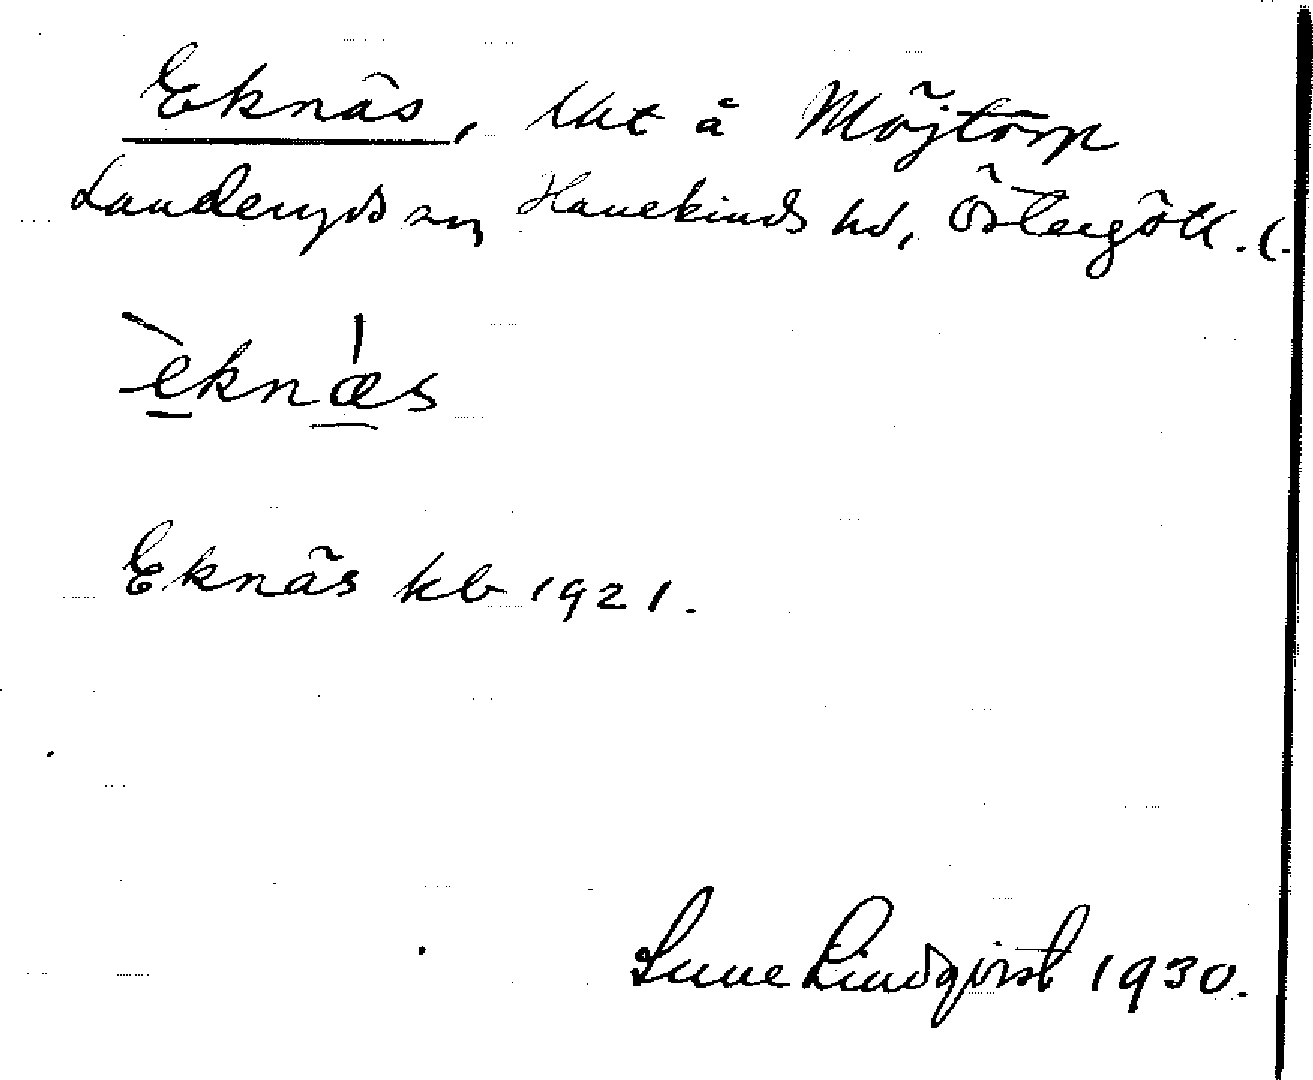 Eknäs, lht å Möjtorp
Landeryds sn, Hanekinds hd, Östergötl. l.
èknæs
Eknäs kb 1921.
Sune Lindqvist 1930.